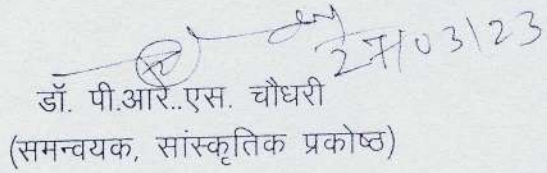 27/03/23
डॉ. पी.आर..एस. चौधरी
(समन्वयक, सांस्कृतिक प्रकोष्ठ)